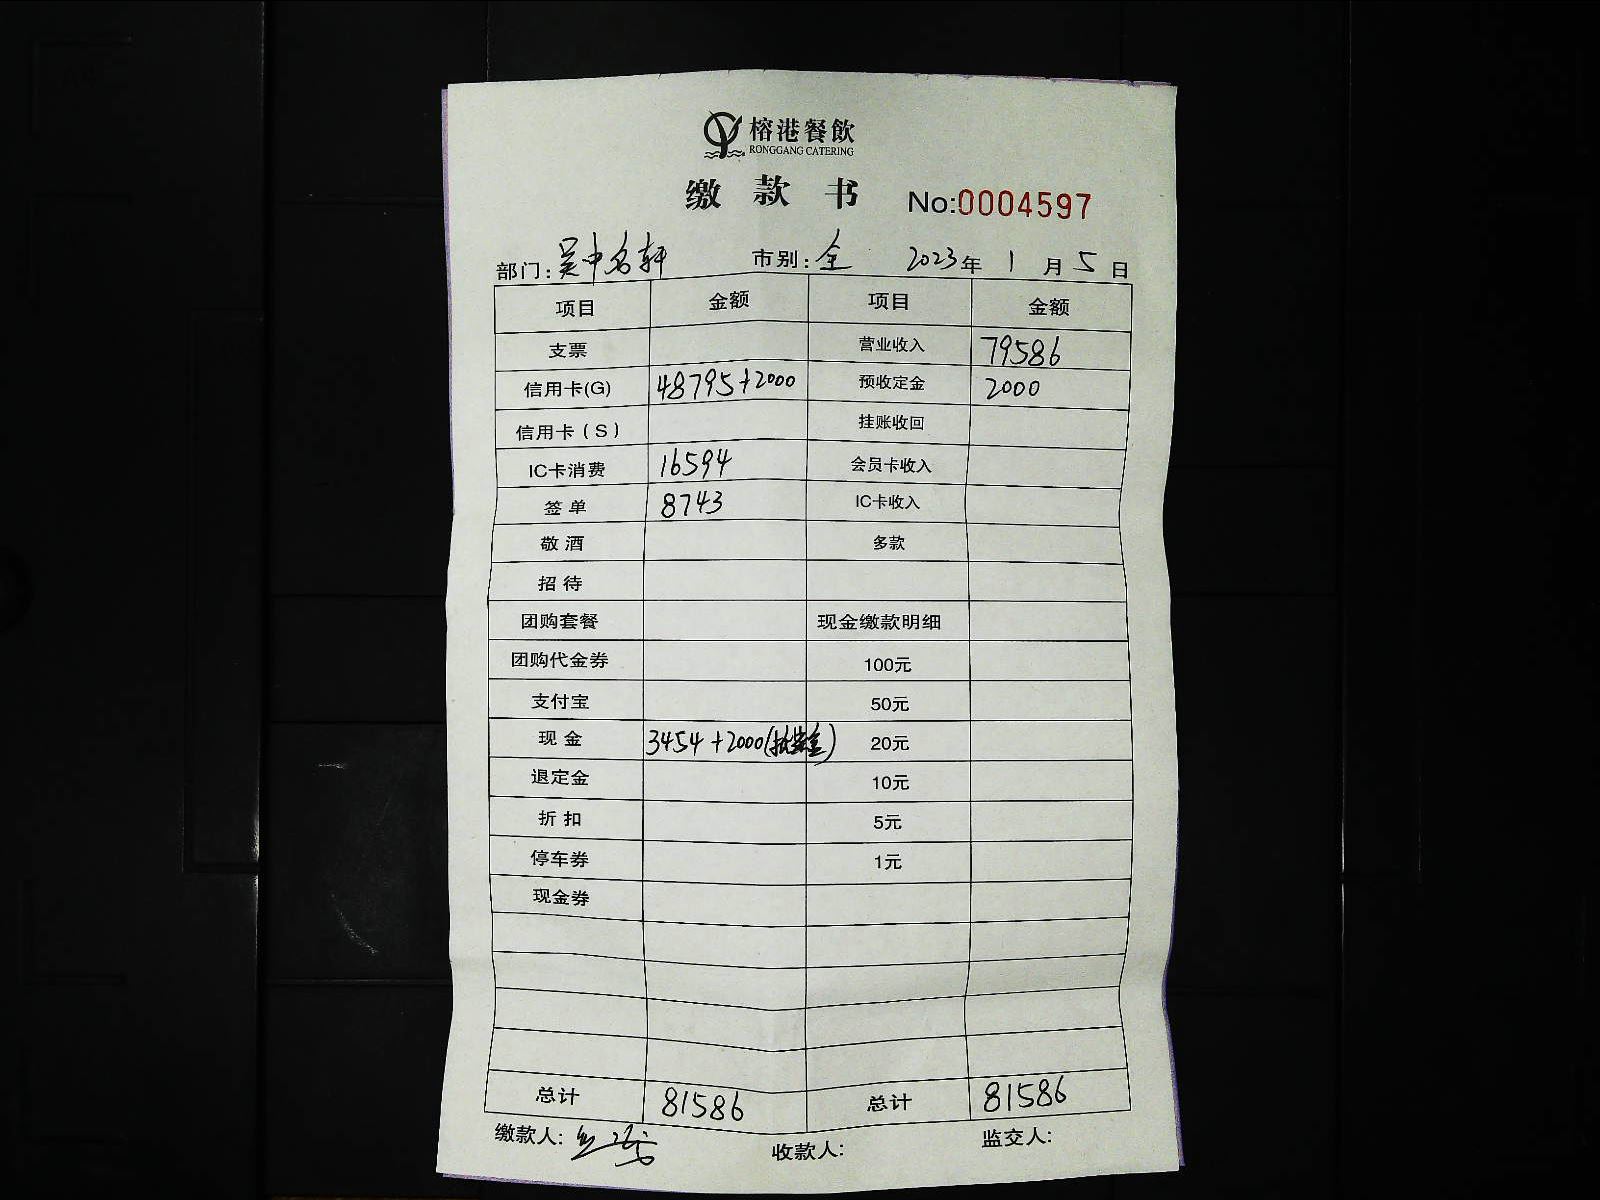 榕港餐飲
RONGGANG CATERING
缴款书 No:0004597
部门：吴中名轩 市别：全 2023年1月5日
项目 金额 项目 金额
支票 营业收入 79586
信用卡(G) 48795+2000 预收定金 2000
信用卡（S） 挂账收回
IC卡消费 16594 会员卡收入
签单 8743 IC卡收入
敬酒 多款
招待
团购套餐 现金缴款明细
团购代金券 100元
支付宝 50元
现金 3454+2000( 20元
退定金 10元
折扣 5元
停车券 1元
现金券
总计 81586 总计 81586
缴款人: 收款人: 监交人: